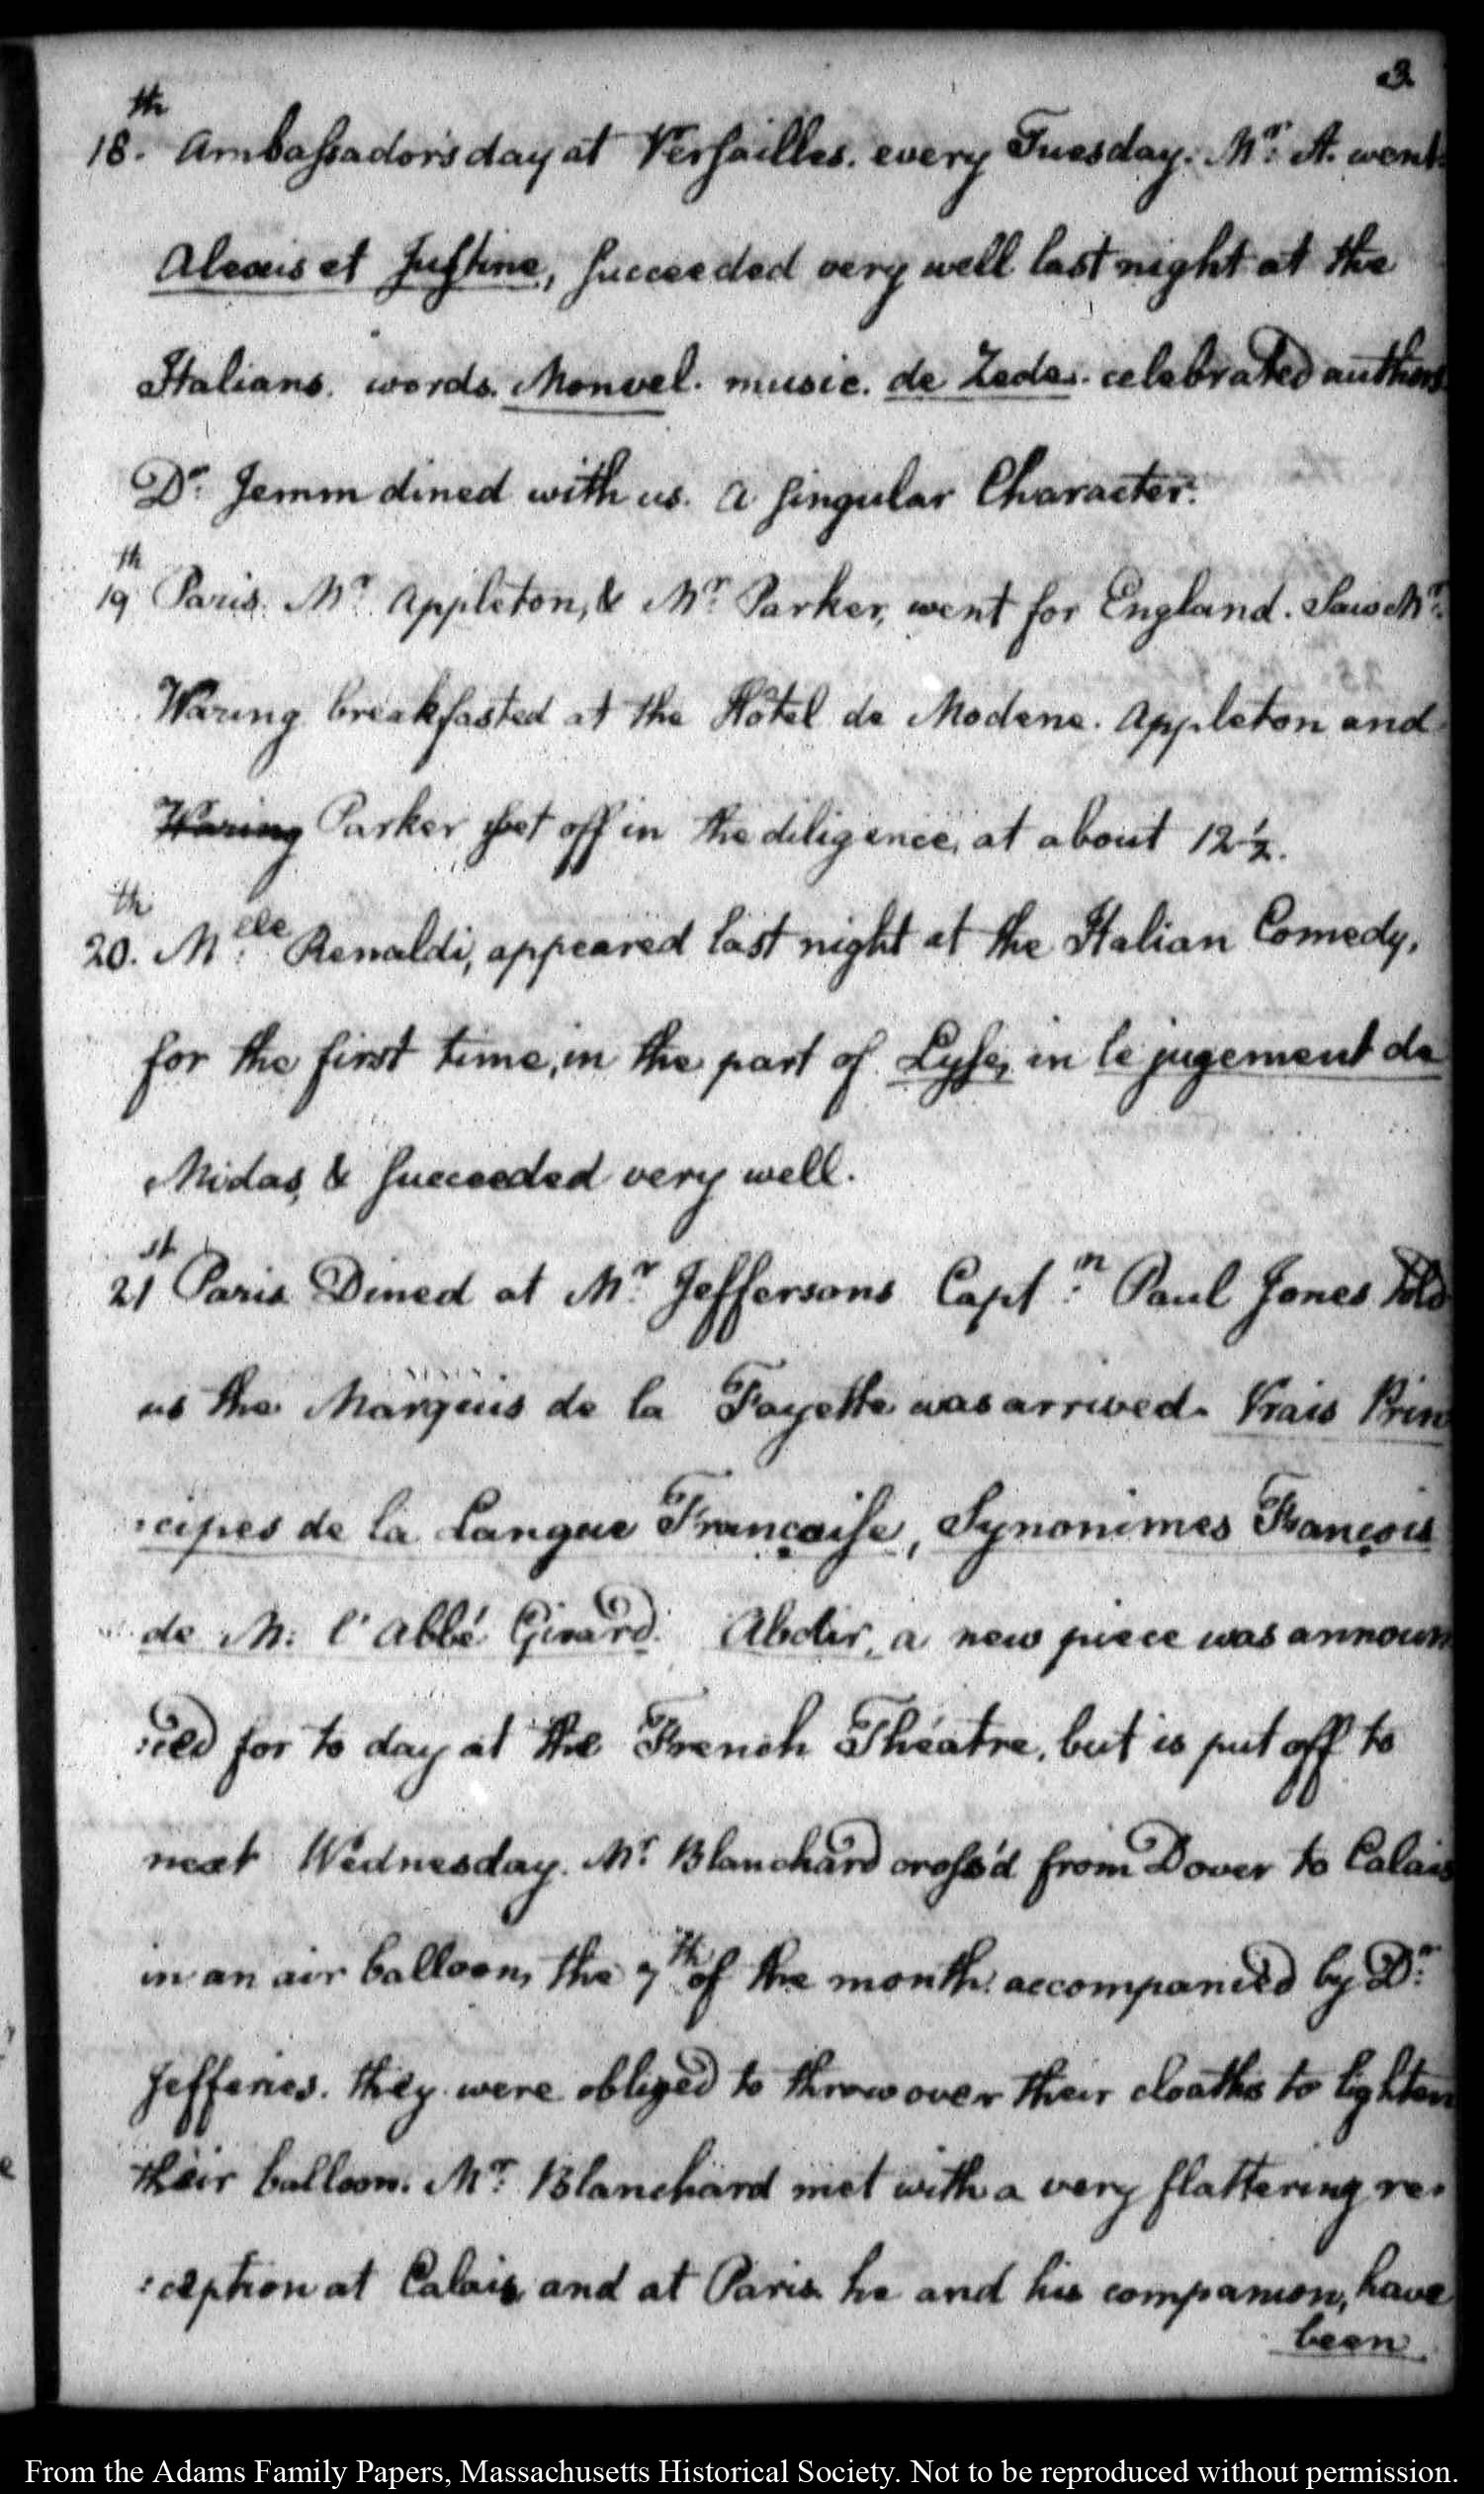 3
18.th Ambassador's day at Versailles. every Tuesday. Mr. A. went.
Alexis et Justine, succeeded very well last night at the
Italians. words. Monvel. music. de Zede. celebrated authors
Dr. Jemm dined with us. a singular Character.
19th Paris. Mr. Appleton, & Mr. Parker, went for England. Saw Mr.
Waring breakfasted at the Hôtel de Modene. Appleton and
Waring Parker set off in the diligence, at about 12 1/2.
20.th Melle. Renaldi, appeared last night at the Italian Comedy,
for the first time, in the part of Lyse, in le jugement de
Midas, & succeeded very well.
21st Paris Dined at Mr. Jeffersons Captn. Paul Jones told
us the Marquis de la Fayette was arrived. Vrais Prin
:cipes de la Langue Françaïse, Synonimes François
de M: l'Abbé Girard. Abdir, a new piece was announ
:ced for to day at the French Théatre, but is put off to
next Wednesday. Mr. Blanchard cross'd from Dover to Calais
in an air balloon, the 7th of the month. accompanied by Dr.
Jefferies. they were obliged to throw over their cloaths to lighten
their balloon. Mr. Blanchard met with a very flattering re:
:ception at Calais, and at Paris. he and his companion, have
been
From the Adams Family Papers, Massachusetts Historical Society. Not to be reproduced without permission.